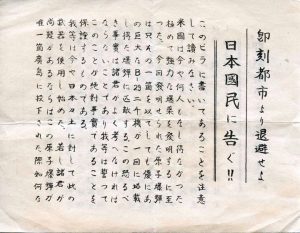 即刻都市より退避せよ
日本國民に告ぐ!!
このビラに書いてあることを注意
して讀みなさい。
米國は今や何人もなし得なかつた
極めて強力な爆薬を發明するに至
つた。今回發明せられた原子爆弾
は只その一箇を以てしても優にあ
の巨大なB-29二千機が一回に搭載
し得た爆弾に匹敵する。この恐る
べき事實は諸君がよく考へなければ
ならないことであり我等は誓つて
このことが絶対事實であることを
保證するものである。
我等は今や日本々土に対して此の
武器を使用し始めた。若し諸君が
尚疑があるならばこの原子爆弾が
唯一箇廣島に投下された際如何な